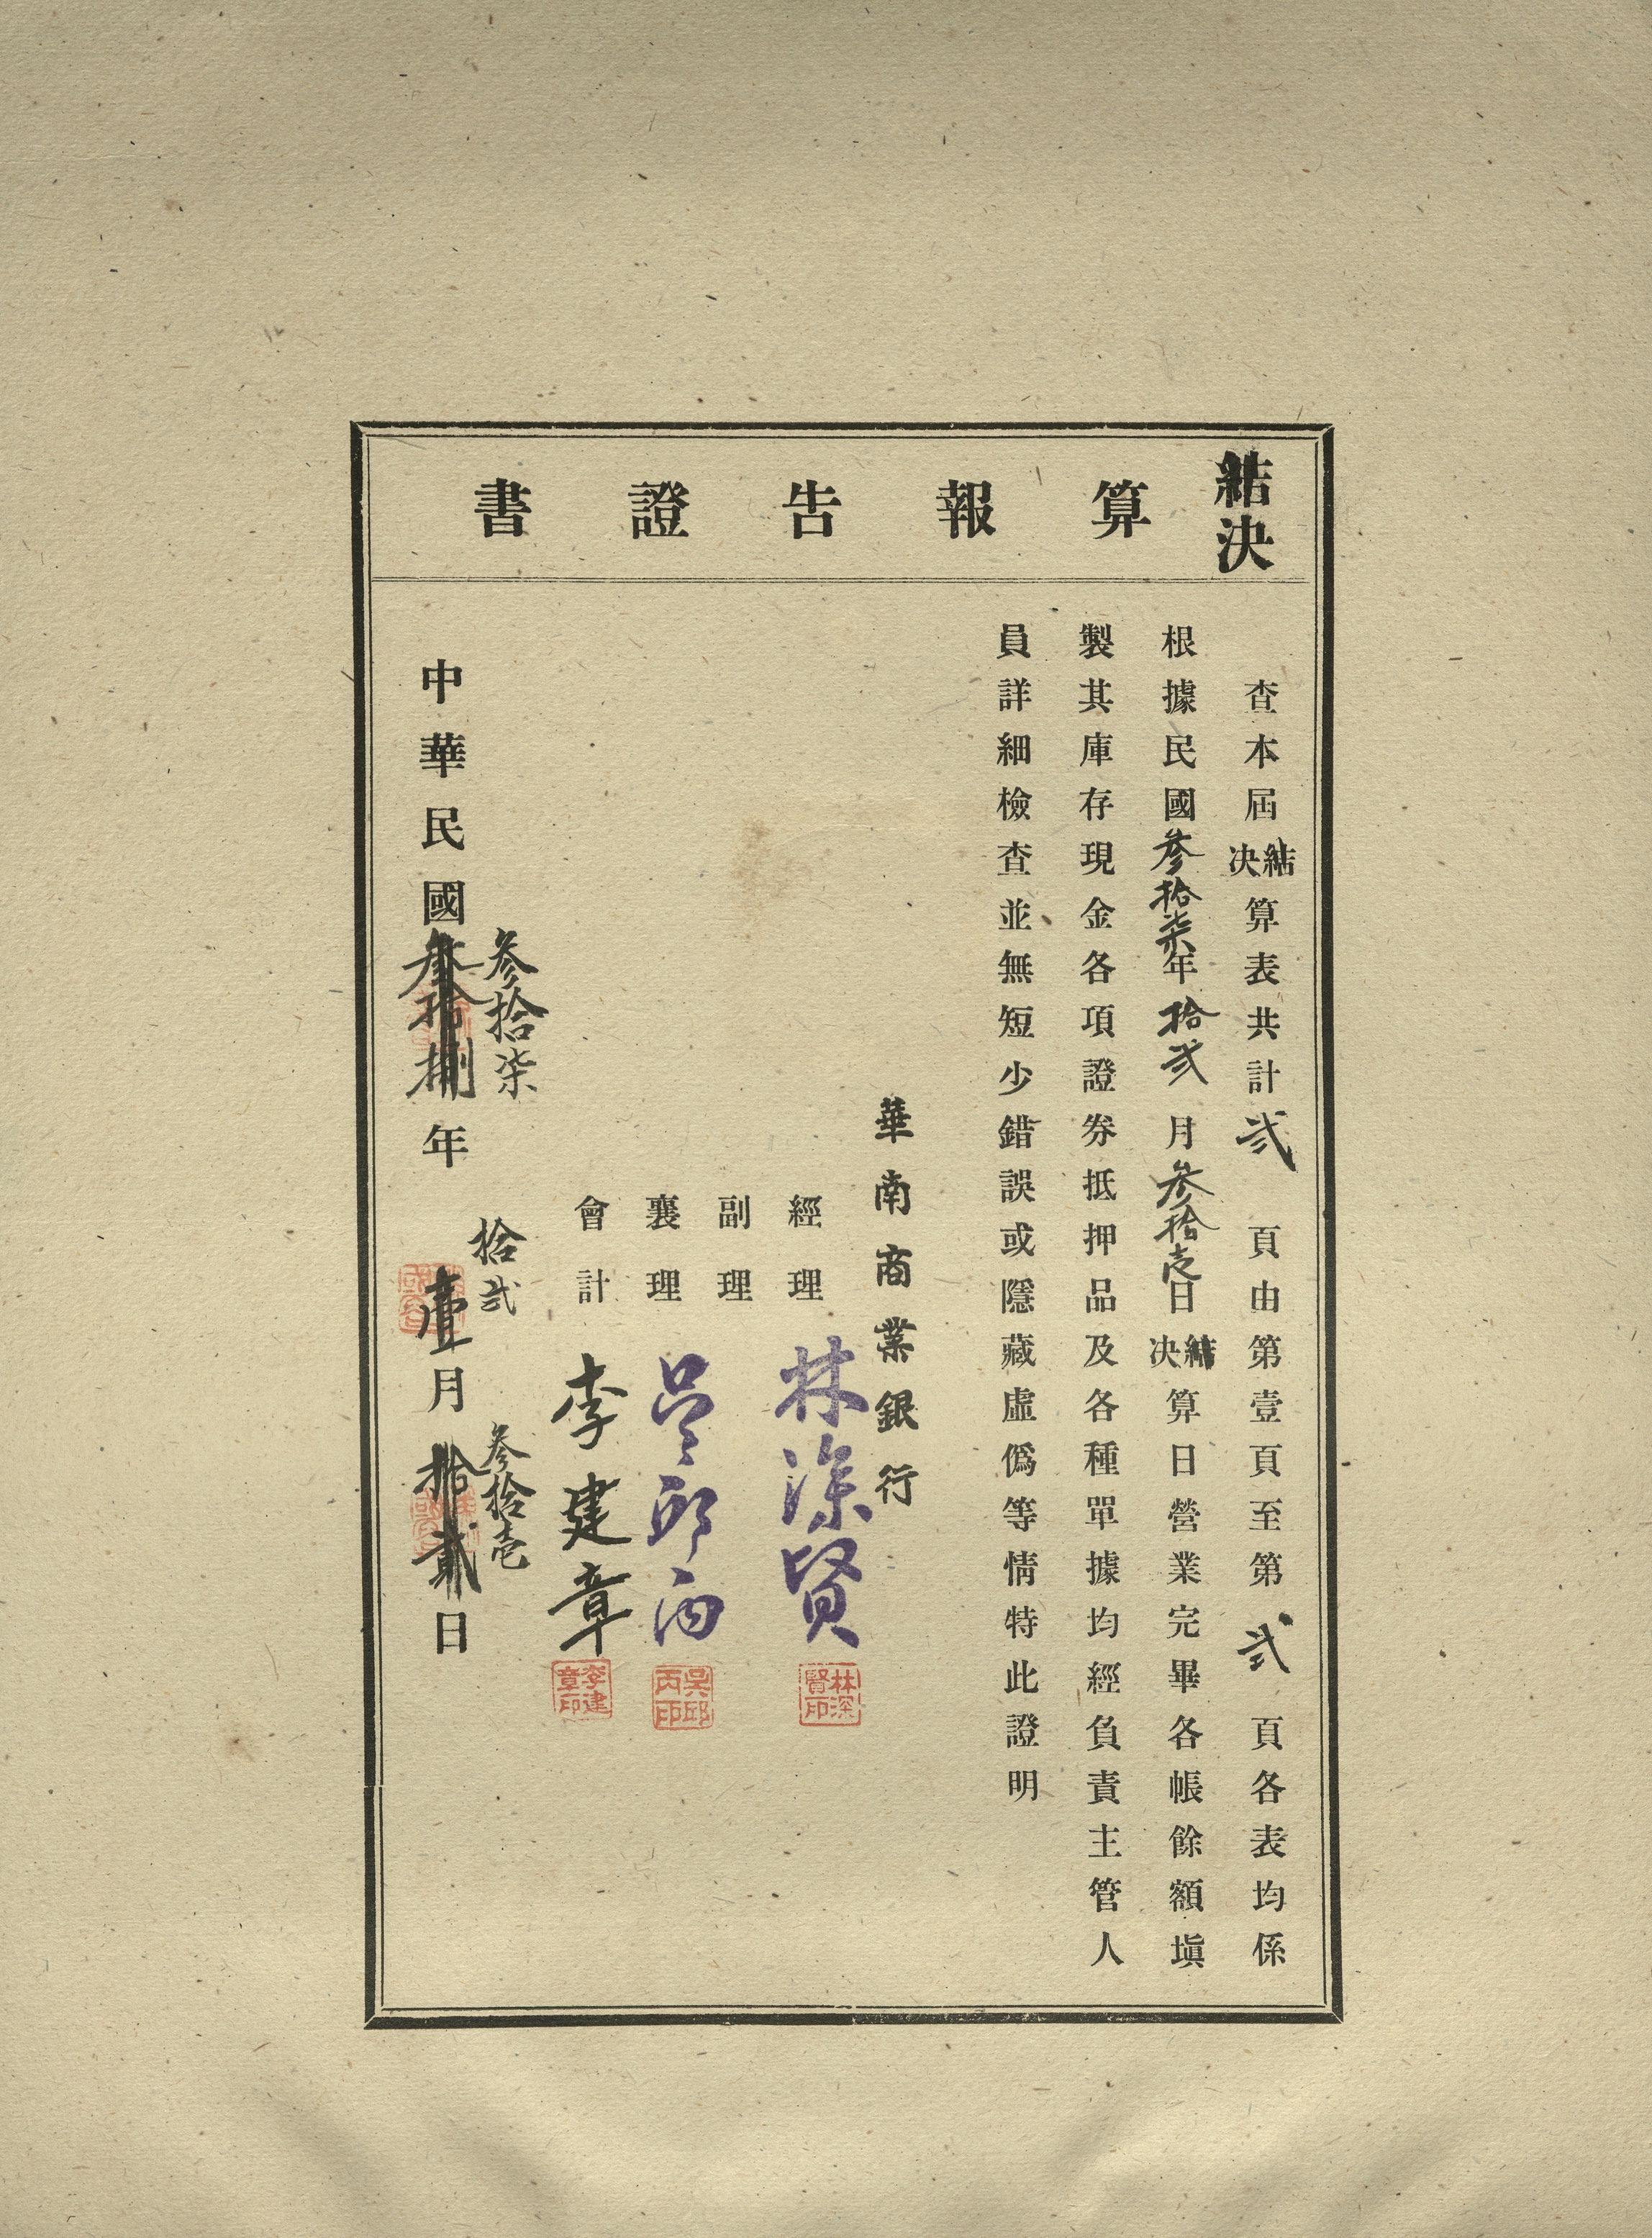 結決算報告證書
查本屆結決算表共計弍頁由第壹頁至第弍頁各表均係
根據民國叁拾柒年拾弍月叁拾壱日結決算日營業完畢各帳餘額塡
製其庫存現金各項證券抵押品及各種單據均經負責主管人
員詳細檢查並無短少錯誤或隱藏虛僞等情特此證明
華南商業銀行
經理 林深賢
林深賢印
副理
襄理 吳邱丙
吳邱丙印
會計 李建章
李建章印
叁拾柒 拾弍 叁拾壱
中華民國叁拾捌年壹月拾貳日